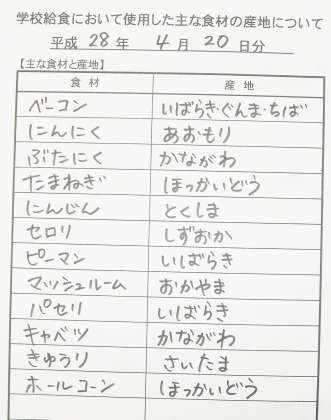 学校給食において使用した主な食材の産地について
平成 28 年 4 月 20 日分
【主な食材と産地】
食材 産地
ベーコン いばらき・ぐんま・ちば
にんにく あおもり
ぶたにく かながわ
たまねぎ ほっかいどう
にんじん とくしま
セロリ しずおか
ピーマン いばらき
マッシュルーム おかやま
パセリ いばらき
キャベツ かながわ
きゅうり さいたま
ホールコーン ほっかいどう